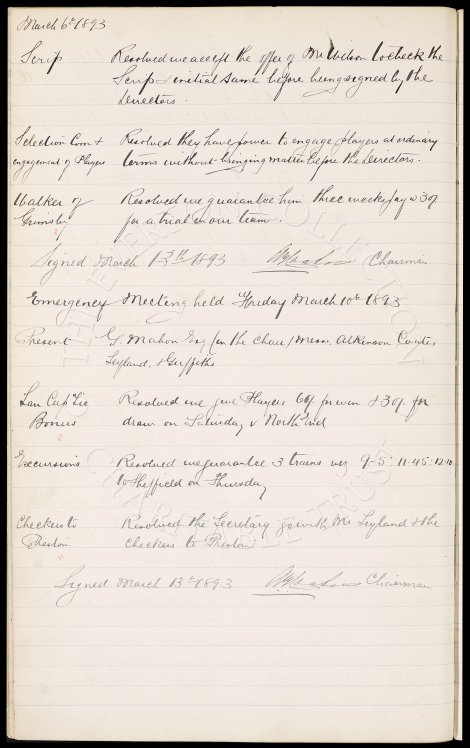 March 6th 1893
Scrip Resolved we accept the offer of Mr Wilson to check the
Scrip & initial same before being signed by the
Directors.
Selection Com & Resolved they have power to engage players at ordinary
engagement of Players terms without bringing matter before the Directors.
Walker of Resolved we guarantee him three weeks pay @ 30/-
Grimsby for a trial in our team.
Signed March 13th 1893 Chairman
Emergency Meeting held Friday March 10th 1893
Present G. Mahon Esq (in the Chair) Messrs. Atkinson Coates,
Leyland, & Griffiths
Lan Cup Tie Resolved we give Players 60/- for win & 30/- for
Bonus draw on Saturday v North End
Excursions Resolved we guarantee 3 trains viz 9-5 : 11-45 : 12-10
to Sheffield on Thursday
Checkers to Resolved the Secretary go with Mr Leyland & the
Preston checkers to Preston
Signed March 13th 1893 Chairman
THE EVERTON COLLECTION
CHARITABLE TRUST